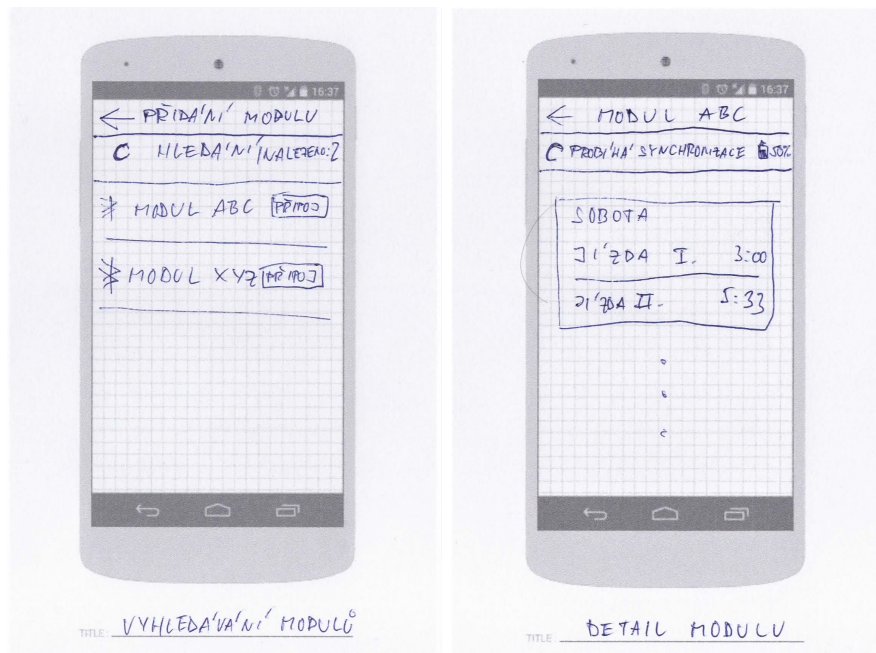 16:37
← PŘIDÁNÍ MODULU
HLEDÁNÍ/NALEZENO:2
MODUL ABC PŘIPOJ
MODUL XYZ PŘIPOJ
TITLE: VYHLEDÁVÁNÍ MODULŮ
16:37
← MODUL ABC
PROBÍHÁ SYNCHRONIZACE 50%
SOBOTA
JÍZDA I. 3:00
JÍZDA II. 5:33
TITLE: DETAIL MODULU